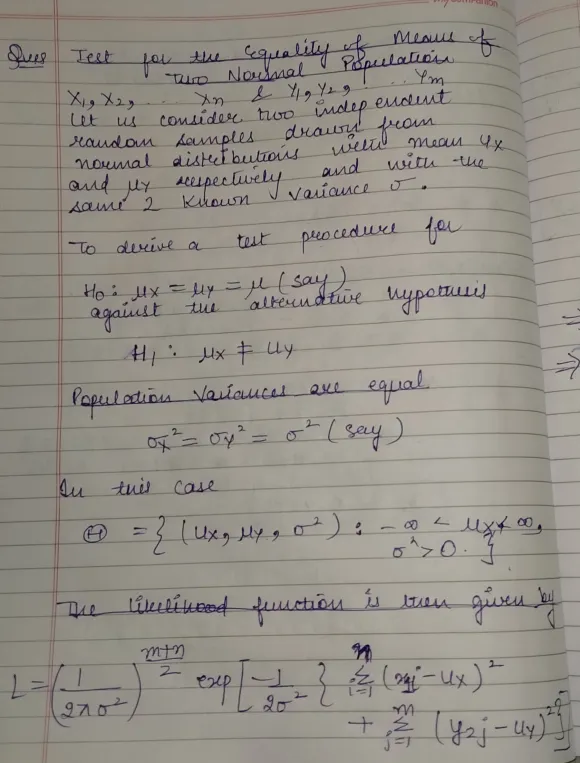 Ques Test for the Equality of Means of
Two Normal Population
X₁, X₂, ... Xn & Y₁, Y₂, ... Ym
Let us consider two independent
random samples drawn from
normal distributions with mean μx
and μy respectively and with the
same 2 known variance σ.
To derive a test procedure for
H₀: μx = μy = μ (say)
against the alternative hypothesis
H₁: μx ≠ μy
Population variances are equal
σx² = σy² = σ² (say)
In this case
Ⓗ = { (μx, μy, σ²) : -∞ < μx < ∞,
σ² > 0. }
The likelihood function is then given by
L = (1/2πσ²)^(m+n)/2 exp[-1/2σ² { n Σ i=1 (xj - μx)²
+ m Σ j=1 (y2j - μy)² }]